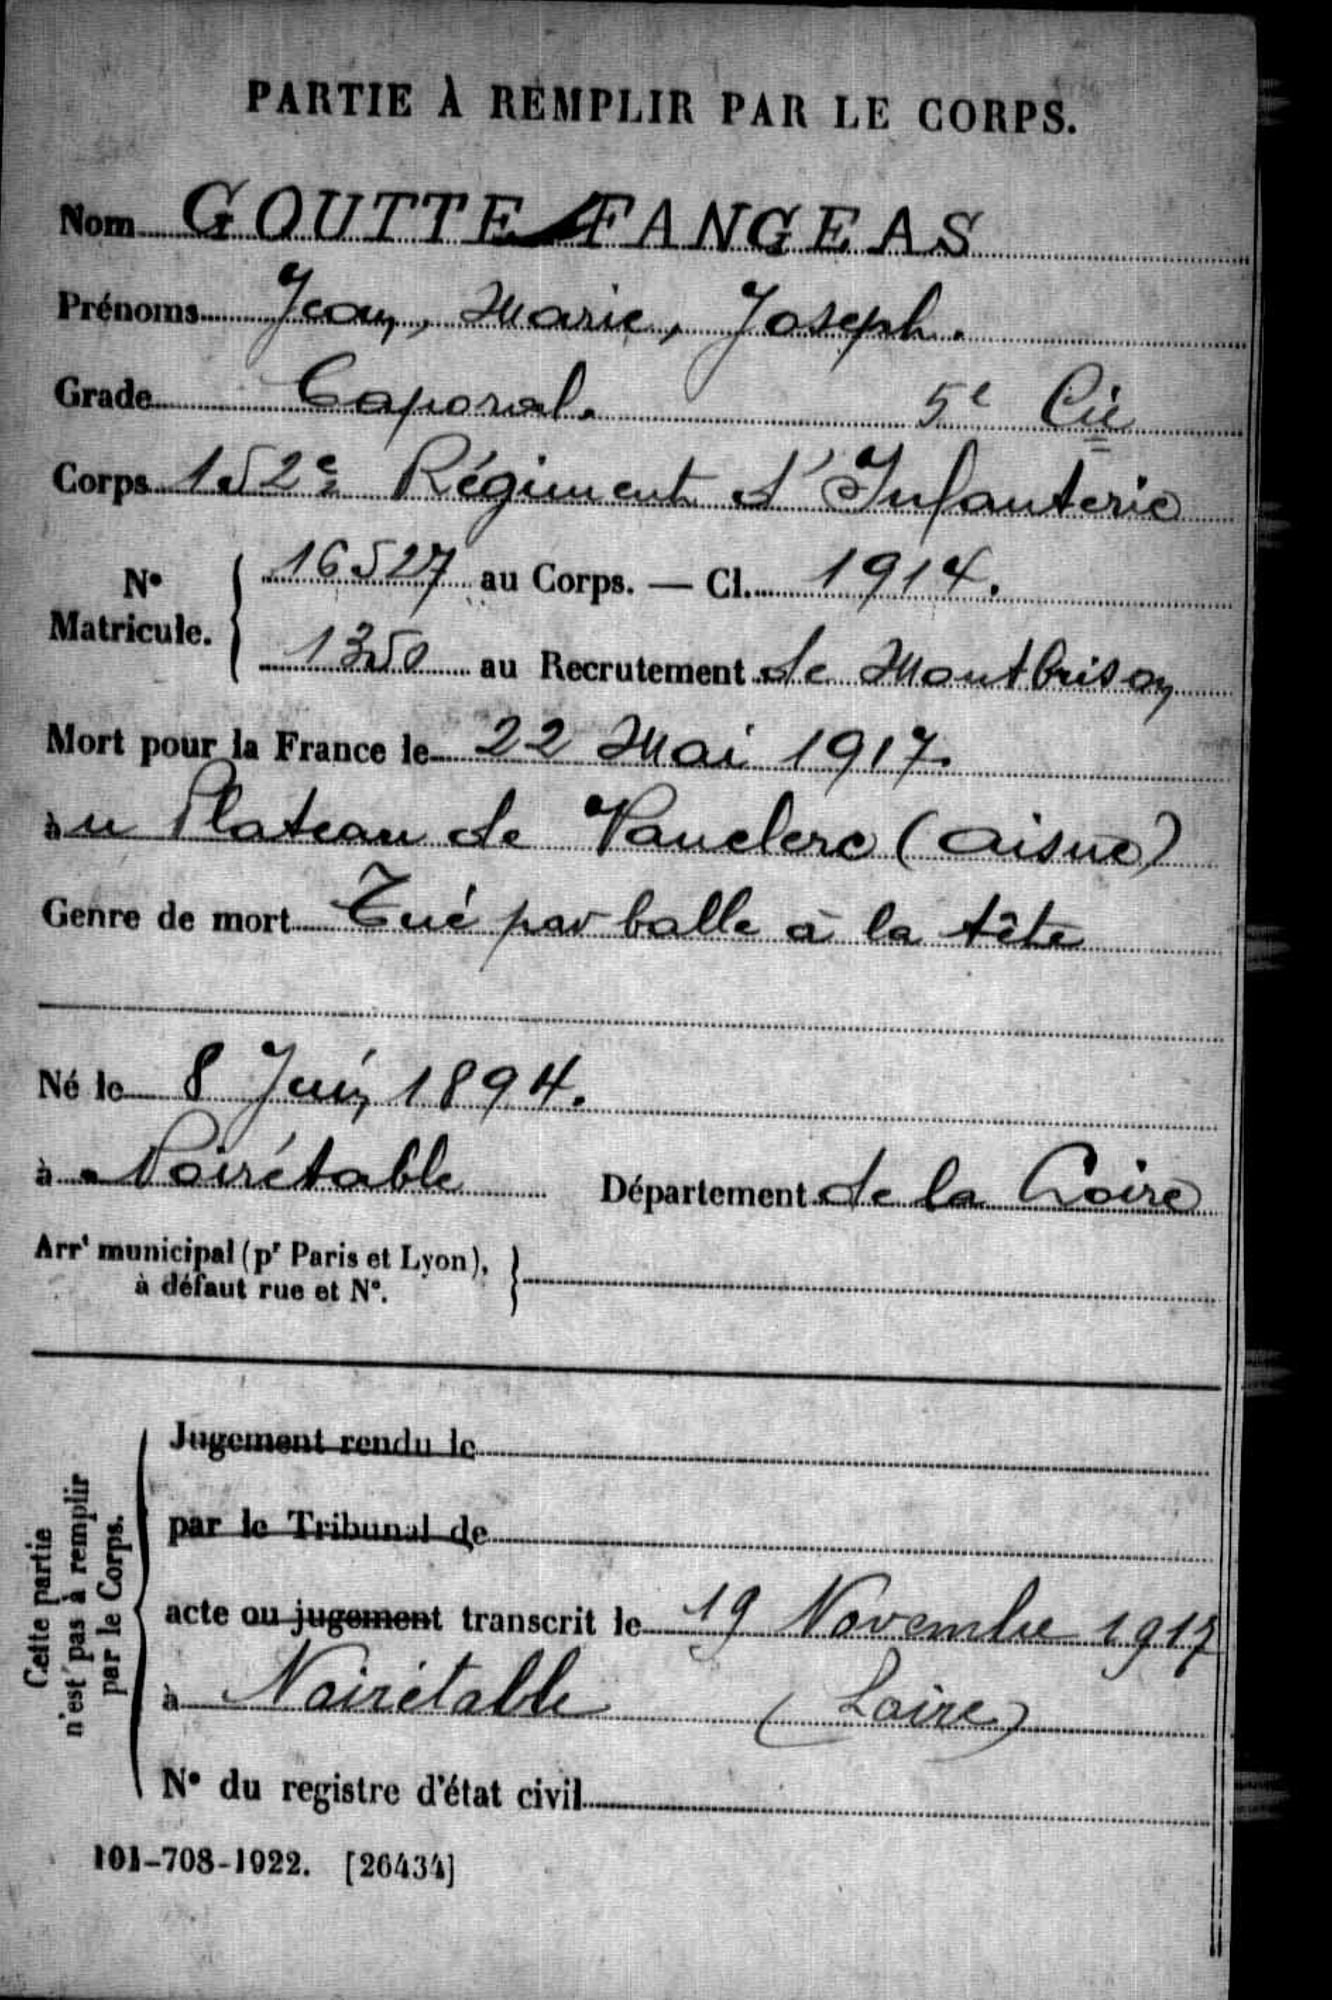 PARTIE À REMPLIR PAR LE CORPS.
Nom GOUTTE FANGEAS
Prénoms Jean, Marie, Joseph.
Grade Caporal. 5e Cie
Corps 152e Régiment d'Infanterie
No Matricule. 16527 au Corps. — Cl. 1914.
1350 au Recrutement de Montbrison
Mort pour la France le 22 Mai 1917.
au Plateau de Vauclerc (Aisne)
Genre de mort Tué par balle à la tête
Né le 8 Juin 1894.
à Noirétable Département de la Loire
Arrt municipal (pr Paris et Lyon),
à défaut rue et No.
Cette partie n'est pas à remplir par le Corps.
Jugement rendu le
par le Tribunal de
acte ou jugement transcrit le 19 Novembre 1917
à Noirétable (Loire)
No du registre d'état civil
101-708-1922. [26434]